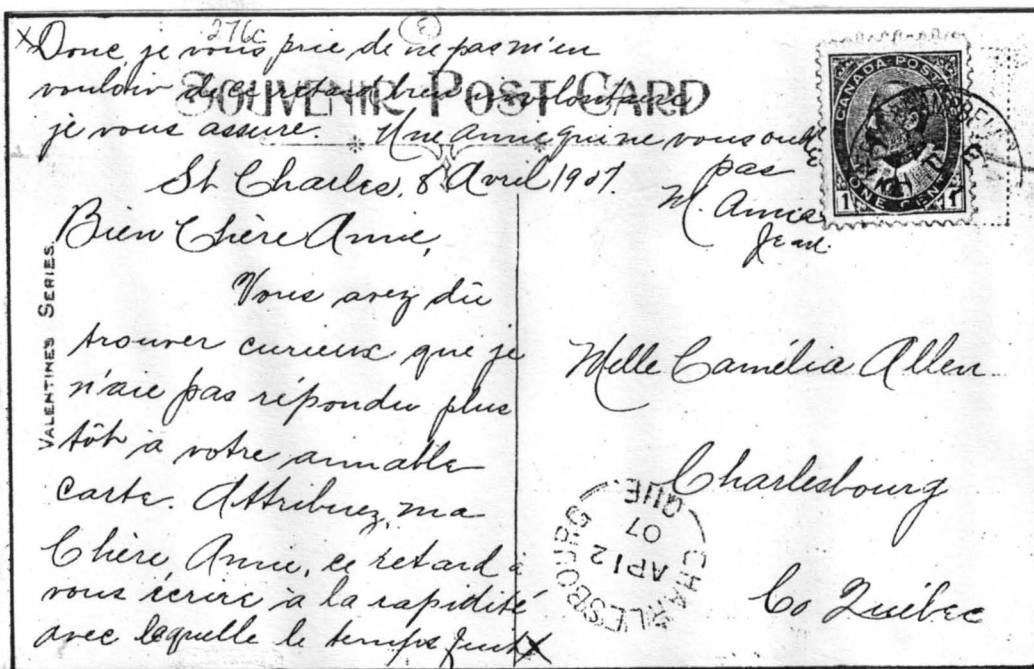 276c
E
X Donc, je vous prie de ne pas m'en
vouloir de ce retard bien involontaire
je vous assure. Une amie qui ne vous oublie
pas
M. Anna
Jean.
SOUVENIR POST CARD
CANADA POSTAGE
ONE CENT
1 1
VALENTINES SERIES.
St Charles, 8 Avril 1907.
Bien Chère Amie,
Vous avez dû
trouver curieux que je
n'aie pas répondu plus
tôt à votre aimable
carte. Attribuez, ma
Chère Amie, ce retard à
vous écrire à la rapidité
avec laquelle le temps fuit X
Melle Camélia Allen
Charlesbourg
Co Québec
CHARLESBOURG
AP 12
07
QUE.